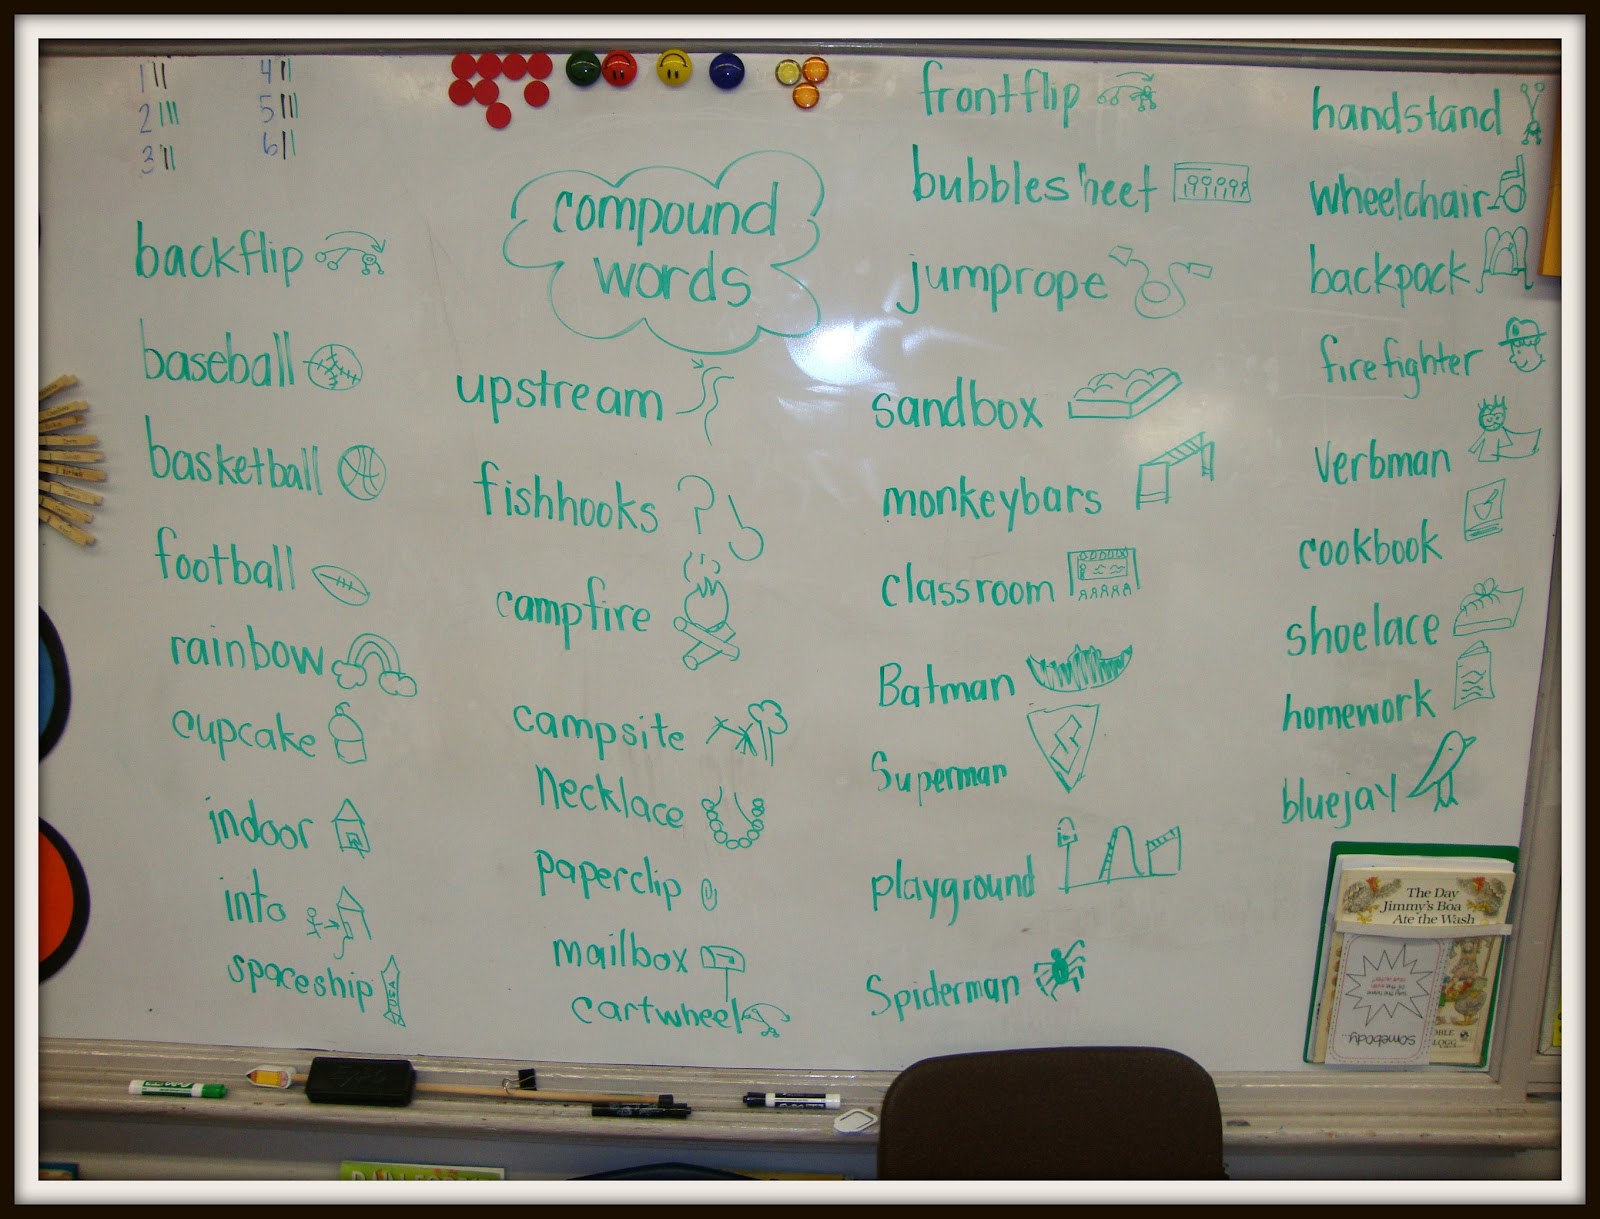 1
2
3
4
5
6
compound
words
backflip
baseball
basketball
football
rainbow
cupcake
indoor
into
spaceship
USA
upstream
fishhooks
campfire
campsite
necklace
paperclip
mailbox
cartwheel
frontflip
bubbles heet
jumprope
sandbox
monkeybars
classroom
Batman
Superman
playground
Spiderman
handstand
wheelchair
backpack
firefighter
verbman
cookbook
shoelace
homework
bluejay
The Day
Jimmy's Boa
Ate the Wash
somebody